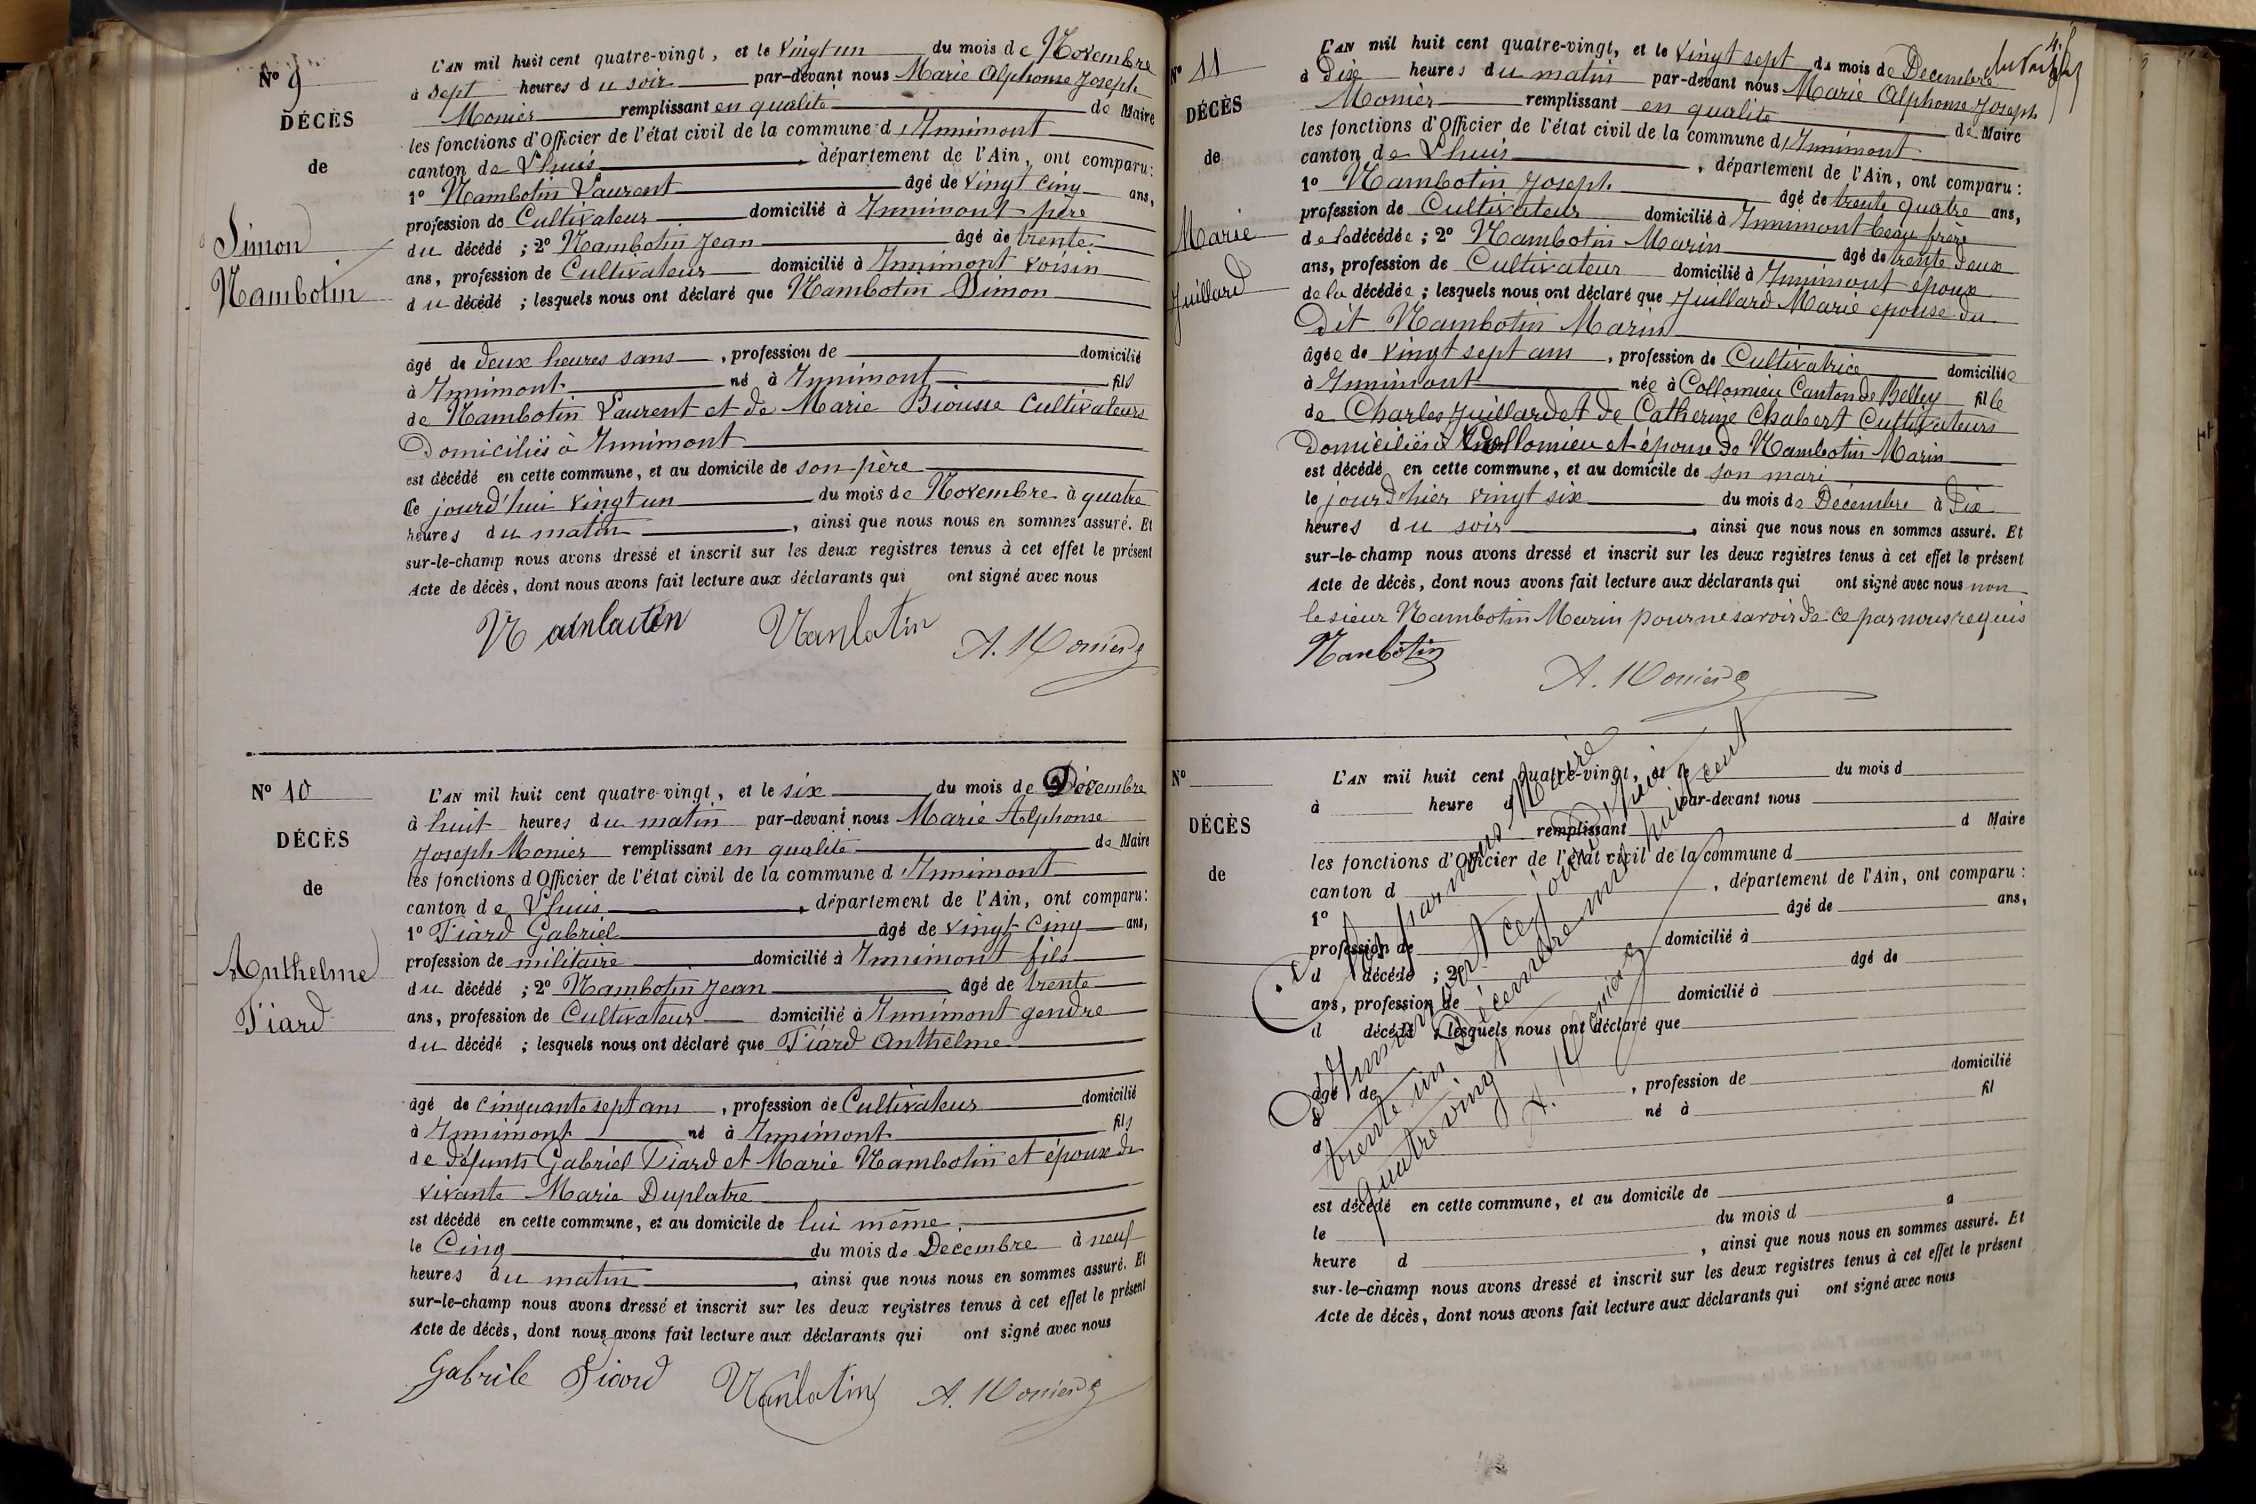 N° 9
DÉCÈS
de
Simon
Nambotin
L'AN mil huit cent quatre-vingt, et le vingt un du mois de Novembre
à sept heures du soir par-devant nous Marie Alphonse Joseph
Monier remplissant en qualité de Maire
les fonctions d'Officier de l'état civil de la commune d'Innimont
canton de Lhuis, département de l'Ain, ont comparu :
1° Nambotin Laurent âgé de vingt cinq ans,
profession de Cultivateur domicilié à Innimont père
du décédé ; 2° Nambotin Jean âgé de trente
ans, profession de Cultivateur domicilié à Innimont voisin
du décédé ; lesquels nous ont déclaré que Nambotin Simon
âgé de deux heures sans, profession de domicilié
à Innimont né à Innimont fils
de Nambotin Laurent et de Marie Biousse Cultivateurs
Domiciliés à Innimont
est décédé en cette commune, et au domicile de son père
Ce jourd'hui vingt un du mois de Novembre à quatre
heures du matin, ainsi que nous nous en sommes assuré. Et
sur-le-champ nous avons dressé et inscrit sur les deux registres tenus à cet effet le présent
Acte de décès, dont nous avons fait lecture aux déclarants qui ont signé avec nous
Nambotin Nanbotin A. Monier
N° 10
DÉCÈS
de
Anthelme
Tiard
L'AN mil huit cent quatre-vingt, et le six du mois de Décembre
à huit heures du matin par-devant nous Marie Alphonse
Joseph Monier remplissant en qualité de Maire
les fonctions d'Officier de l'état civil de la commune d'Innimont
canton de Lhuis, département de l'Ain, ont comparu :
1° Tiard Gabriel âgé de vingt cinq ans,
profession de militaire domicilié à Innimont fils
du décédé ; 2° Nambotin Jean âgé de trente
ans, profession de Cultivateur domicilié à Innimont gendre
du décédé ; lesquels nous ont déclaré que Tiard Anthelme
âgé de cinquante sept ans, profession de Cultivateur domicilié
à Innimont né à Innimont fils
de défunts Gabriel Tiard et Marie Nambotin et époux de
vivante Marie Duplatre
est décédé en cette commune, et au domicile de lui même.
le Cinq du mois de Decembre à neuf
heures du matin, ainsi que nous nous en sommes assuré. Et
sur-le-champ nous avons dressé et inscrit sur les deux registres tenus à cet effet le présent
Acte de décès, dont nous avons fait lecture aux déclarants qui ont signé avec nous
Gabrile Tiard Nanbotin A. Monier
N° 11
DÉCÈS
de
Marie
Juillard
L'AN mil huit cent quatre-vingt, et le vingt sept du mois de Decembre
à Dix heures du matin par-devant nous Marie Alphonse Joseph
Monier remplissant en qualité de Maire
les fonctions d'Officier de l'état civil de la commune d'Innimont
canton de Lhuis, département de l'Ain, ont comparu :
1° Nambotin Joseph âgé de trente quatre ans,
profession de Cultivateur domicilié à Innimont beau frère
de la décédée ; 2° Nambotin Marin âgé de trente deux
ans, profession de Cultivateur domicilié à Innimont époux
de la décédée ; lesquels nous ont déclaré que Juillard Marie épouse du
Dit Nambotin Marin
âgée de vingt sept ans, profession de Cultivatrice domiciliée
à Innimont née à Collomieu Canton de Belley fille
de Charles Juillard et de Catherine Chabert Cultivateurs
Domiciliés à Collomieu et épouse de Nambotin Marin
est décédé en cette commune, et au domicile de son mari
le jourd'hier vingt six du mois de Décembre à Dix
heures du soir, ainsi que nous nous en sommes assuré. Et
sur-le-champ nous avons dressé et inscrit sur les deux registres tenus à cet effet le présent
Acte de décès, dont nous avons fait lecture aux déclarants qui ont signé avec nous non
le sieur Nambotin Marin pour ne savoir de ce par nous requis
Nanbotin A. Monier
N°
DÉCÈS
de
L'AN mil huit cent quatre-vingt, et le du mois d
à heure d par-devant nous
remplissant d Maire
les fonctions d'Officier de l'état civil de la commune d
canton d , département de l'Ain, ont comparu :
1° âgé de ans,
profession de domicilié à
d décédé ; 2° âgé de
ans, profession de domicilié à
d décédé ; lesquels nous ont déclaré que
âgé de , profession de domicilié
à né à fil
d
est décédé en cette commune, et au domicile de
le du mois d à
heure d , ainsi que nous nous en sommes assuré. Et
sur-le-champ nous avons dressé et inscrit sur les deux registres tenus à cet effet le présent
Acte de décès, dont nous avons fait lecture aux déclarants qui ont signé avec nous
Clos par nous Maire
d'Innimont ce jourd'hui
trente un Décembre mil huit cent
quatre vingt
A. Monier